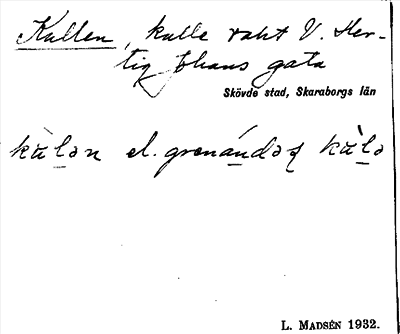 Kullen, kulle rakt V. Her-
tig Johans gata
Skövde stad, Skaraborgs län
kù̀lən el. grenándəʀ kù̀lə
L. MADSÉN 1932.